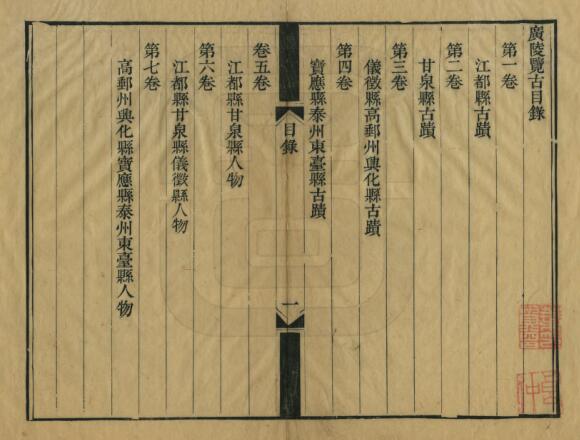 廣陵覽古目錄
第一卷
江都縣古蹟
第二卷
甘泉縣古蹟
第三卷
儀徵縣高郵州興化縣古蹟
第四卷
寶應縣泰州東臺縣古蹟
目錄
一
卷五卷
江都縣甘泉縣人物
第六卷
江都縣甘泉縣儀徵縣人物
第七卷
高郵州興化縣寶應縣泰州東臺縣人物